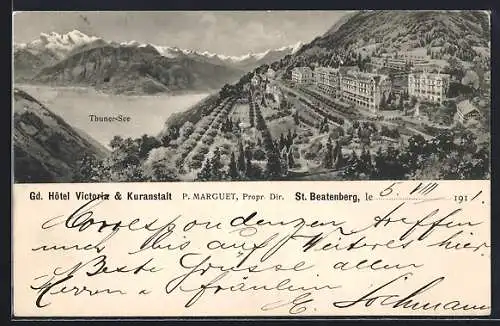 Thuner-See
Gd. Hôtel Victoria & Kuranstalt P. MARGUET, Propr. Dir. St. Beatenberg, le 5. VIII 1911.
Correspondenzen treffen
mich bis auf Weiteres hier.
Beste Grüsse allen
Herren & Fräulein E. Lochmann